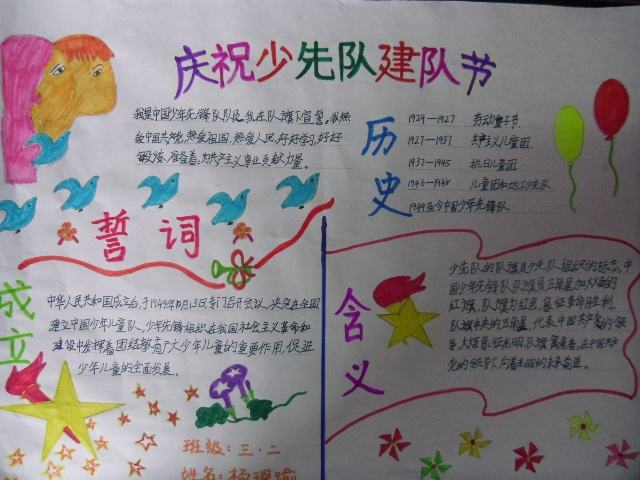 庆祝少先队建队节
我是中国少年先锋队队员,我在队旗下宣誓,我热
爱中国共产党,热爱祖国,热爱人民,好好学习,好好
锻炼,准备着:为共产主义事业贡献力量。
誓词
历史
1924-1927 劳动童子节
1927-1937 共产主义儿童团
1937-1945 抗日儿童团
1946-1948 儿童团和地下少先队
1949至今中国少年先锋队
成立
中华人民共和国成立后,于1949年10月13日专门召开会议,决定在全国
建立中国少年儿童队,少年先锋组织在我国社会主义革命和
建设中发挥着团结教育广大少年儿童的重要作用,促进
少年儿童的全面发展。
含义
少先队的队旗是少先队组织的标志,中
国少年先锋队队旗是五角星加火炬的
红旗,队旗为红色,象征革命胜利,
队旗中央的五角星,代表中国共产党的领
导,火炬象征光明,队旗寓意着:在中国共产
党的领导下,向着光明的未来前进。
班级:三·二
姓名:杨